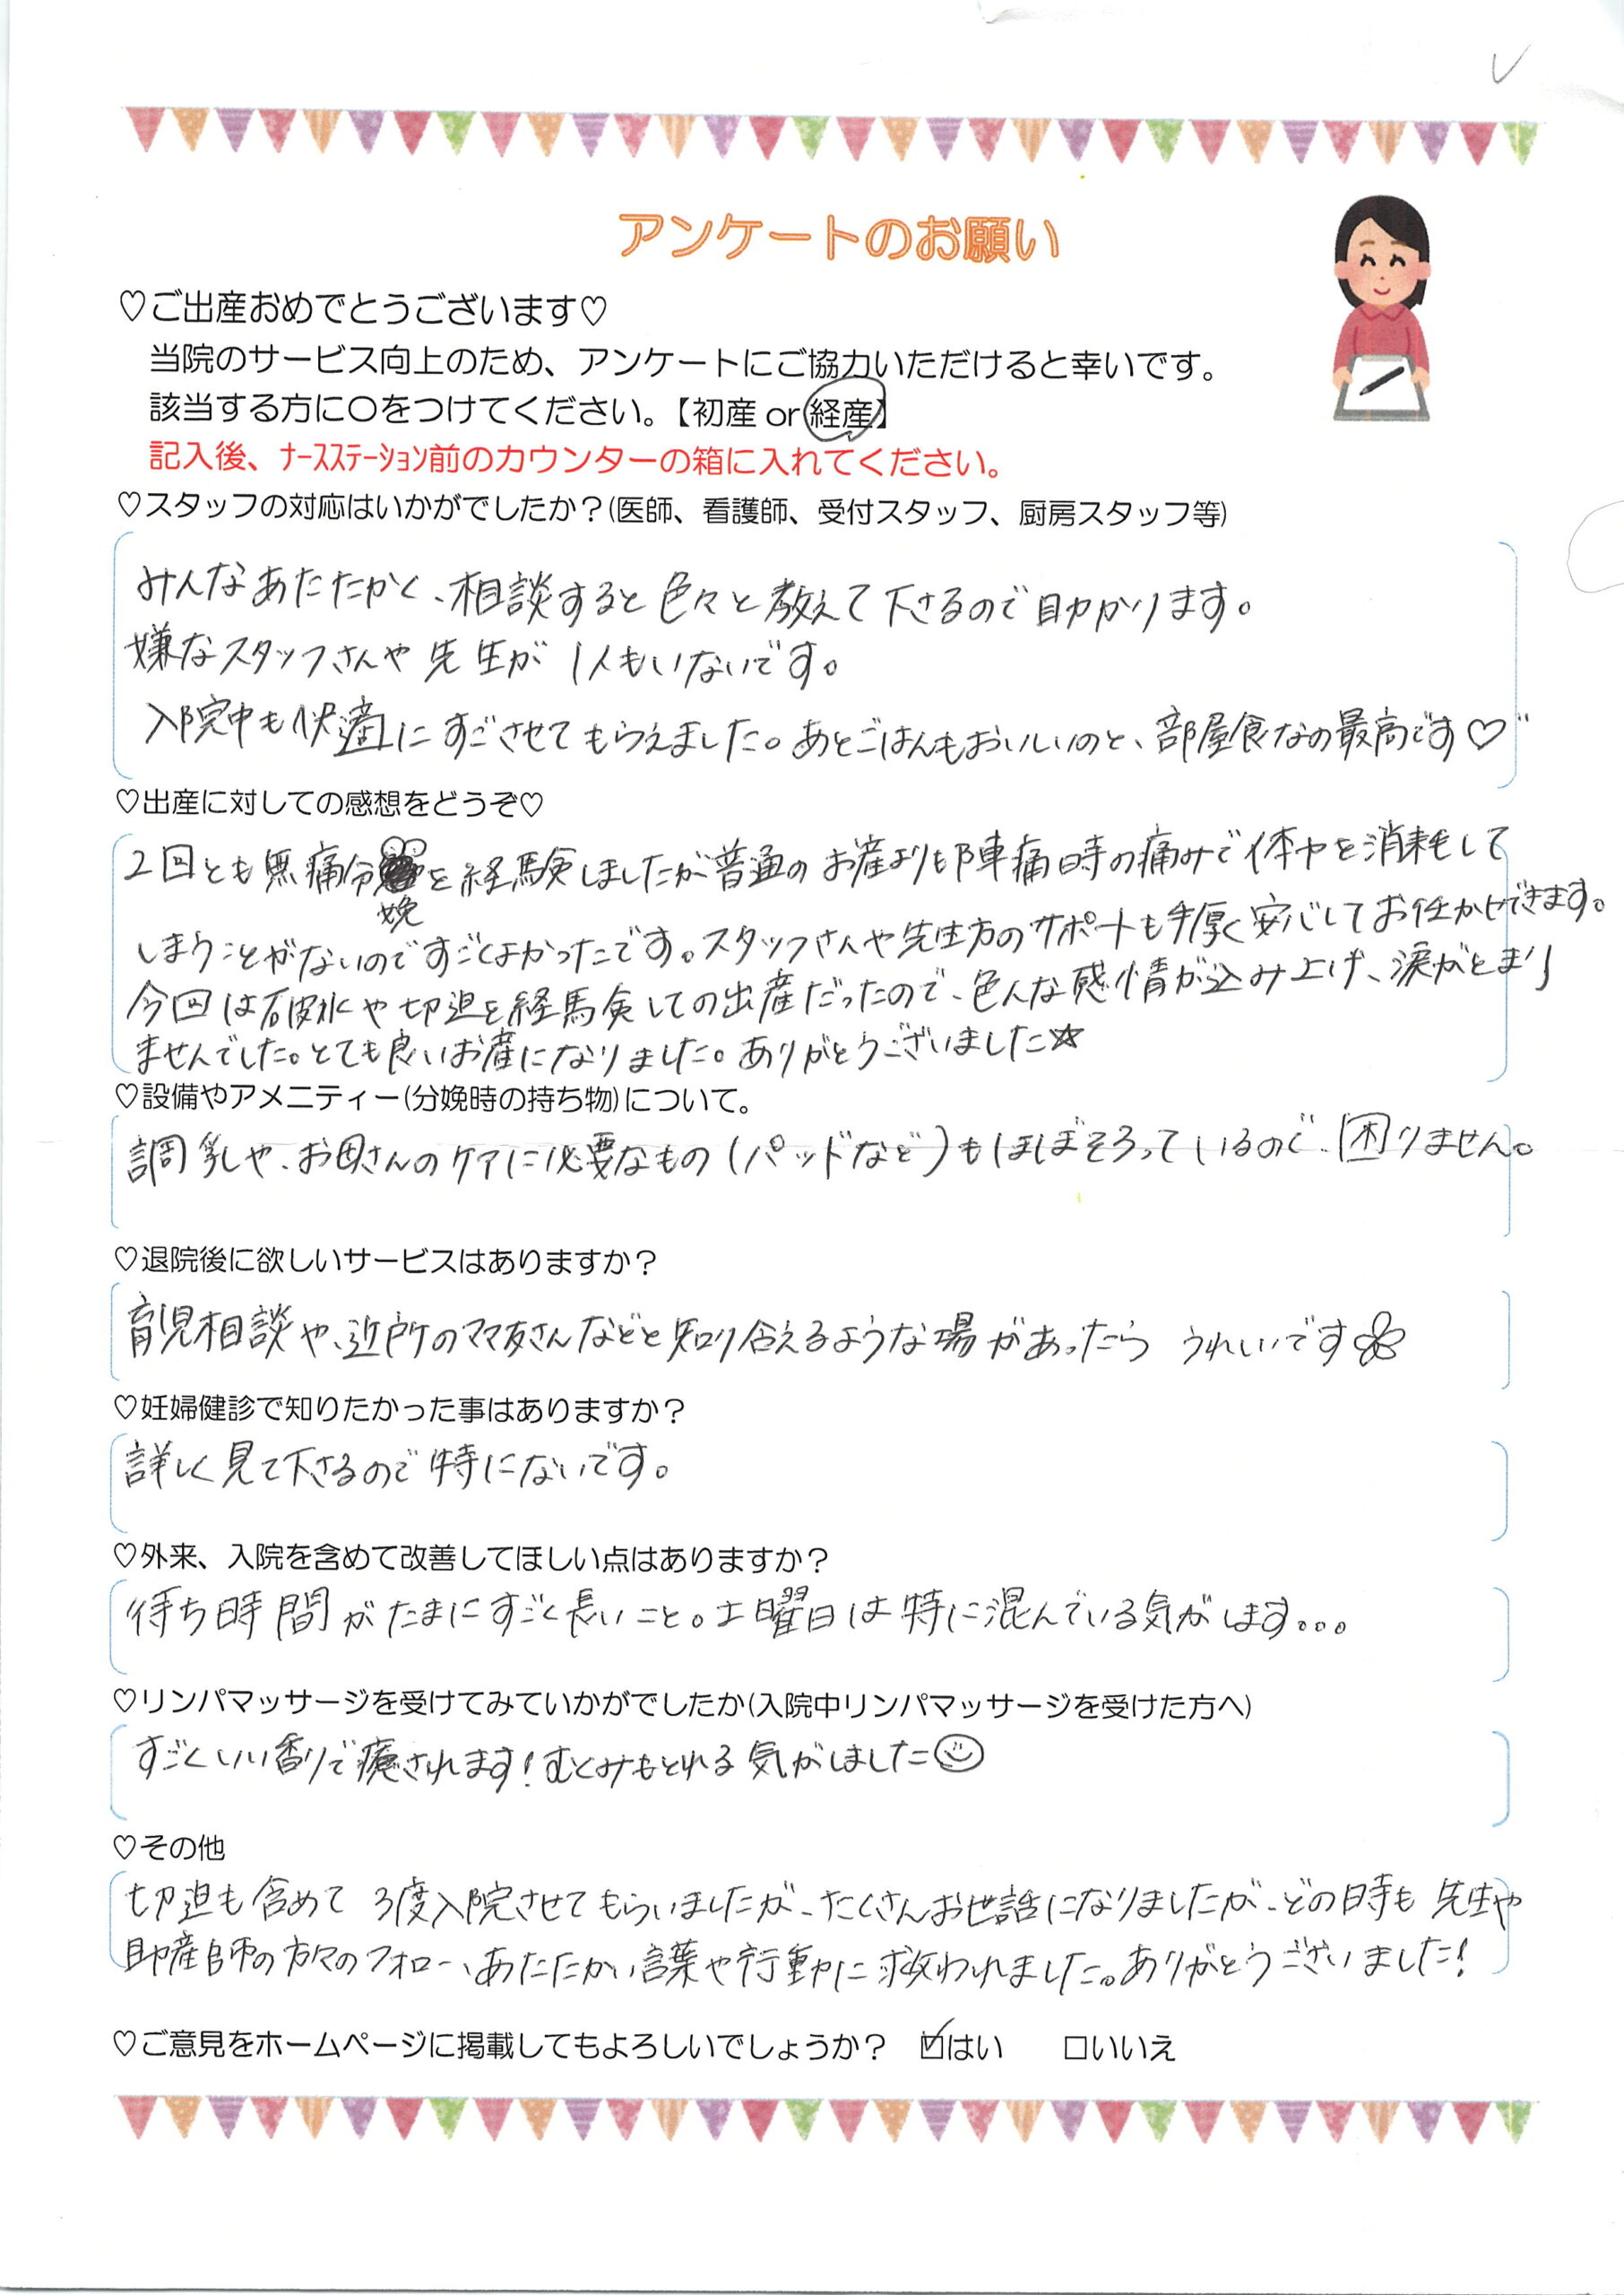 アンケートのお願い
♡ご出産おめでとうございます♡
当院のサービス向上のため、アンケートにご協力いただけると幸いです。
該当する方に〇をつけてください。【初産 or 経産】
記入後、ﾅｰｽｽﾃｰｼｮﾝ前のカウンターの箱に入れてください。
♡スタッフの対応はいかがでしたか？(医師、看護師、受付スタッフ、厨房スタッフ等)
みんなあたたかく、相談すると色々と教えて下さるので助かります。
嫌なスタッフさんや先生が1人もいないです。
入院中も快適にすごさせてもらえました。あとごはんもおいしいのと、部屋食なの最高です♡
♡出産に対しての感想をどうぞ♡
2回とも無痛分娩を経験しましたが普通のお産よりも陣痛時の痛みで体力を消耗して
しまうことがないのですごくよかったです。スタッフさんや先生方のサポートも手厚く安心してお任かせできます。
今回は破水や切迫を経験しての出産だったので、色んな感情が込み上げ、涙がとまり
ませんでした。とても良いお産になりました。ありがとうございました☆
♡設備やアメニティー(分娩時の持ち物)について。
調乳や、お母さんのケアに必要なもの(パッドなど)もほぼそろっているので、困りません。
♡退院後に欲しいサービスはありますか？
育児相談や、近所のママ友さんなどと知り合えるような場があったら うれしいです
♡妊婦健診で知りたかった事はありますか？
詳しく見て下さるので特にないです。
♡外来、入院を含めて改善してほしい点はありますか？
待ち時間がたまにすごく長いこと。土曜日は特に混んでいる気がします...
♡リンパマッサージを受けてみていかがでしたか(入院中リンパマッサージを受けた方へ)
すごくいい香りで癒されます!むくみもとれる気がしました☺
♡その他
切迫も含めて 3度入院させてもらいましたが、たくさんお世話になりましたが、どの時も先生や
助産師の方々のフォロー、あたたかい言葉や行動に救われました。ありがとうございました!
♡ご意見をホームページに掲載してもよろしいでしょうか？ ☑はい □いいえ